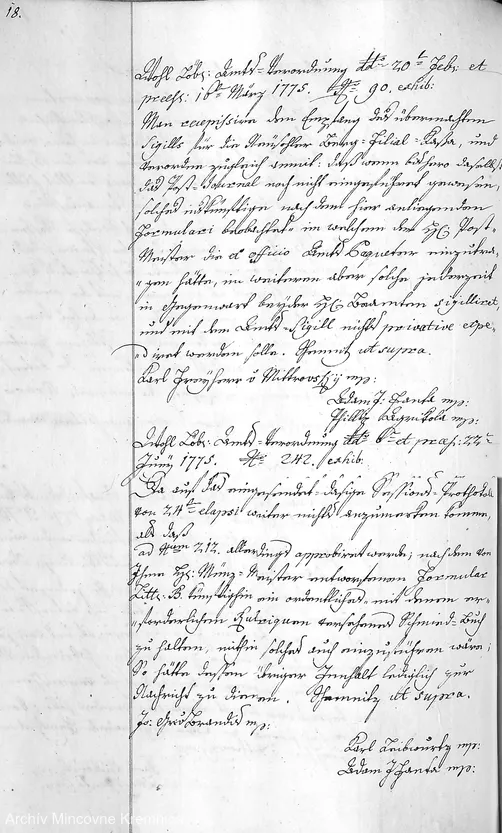 18.
Wohl Löb: Amts-Verordnung ddo 20t Feb: et
præss: 16t März 1775. No 90. exhib:
Man recepissire den Empfang des übermachten
Sigills für die Neusohler Berg-Filial-Kassa, und
verordne zugleich anmit: daß wenn bishero daselbst
das Post-Journal noch nicht eingeführet gewesen,
solches inskünftige nach dem hier anliegenden
Formulari beobachtet in welchem der H: Post-
Meister die ex officio Amts Paqueter einzutra-
gen hätte, im weiteren aber solche jederzeit
in Gegenwart beyder H: Beamten sigilliret,
und mit dem Amts-Sigill nichts privative expe-
diret werden solle. Schemnitz ut supra.
Karl Freyherr v Mittrovszky mp:
Adam J: Hanka mp:
Philipp Agrikola mp:
Wohl Löb: Amts-Verordnung ddo 6t et præs: 22t
Juny 1775. No 242. exhib:
Da aus das eingesendet-dasige Sessions-Protokoll
von 24t elapsi weiter nichts anzumerken komme,
als daß
ad Num 212. allerdings approbiret werde; nach dem von
Ihme H: Münz-Meister entworfenen Formular
Litt: B. künftighin ein ordentliches-mit denen er-
forderlichen Rubriquen versehenes Schmied-Buch
zu halten, mithin solches auch einzuführen wäre;
So hätte dessen übriger Innhalt lediglich zur
Nachricht zu dienen. Schemnitz ut supra.
Jos: mp:
Karl Leibwurtz mp:
Adam J Hanka mp:
Archív Mincovne Kremnica